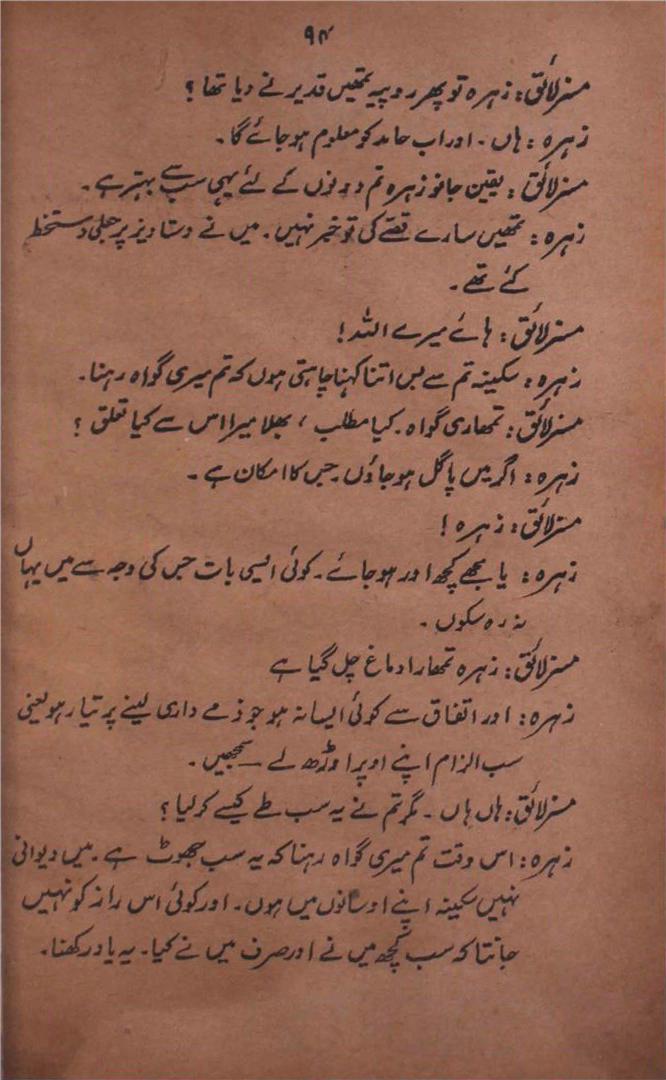 ۹۴
مسز لائق: زہرہ تو پھر روپیہ تمھیں قدیر نے دیا تھا؟
زہرہ: ہاں۔ اور اب حامد کو معلوم ہو جائے گا۔
مسز لائق: یقین جانو زہرہ تم دونوں کے لئے یہی سب سے بہتر ہے۔
زہرہ: تمھیں سارے قصّے کی تو خبر نہیں۔ میں نے دستاویز پر جعلی دستخط
کئے تھے۔
مسز لائق: ہائے میرے اللہ!
زہرہ: سکینہ تم سے بس اتنا کہنا چاہتی ہوں کہ تم میری گواہ رہنا۔
مسز لائق: تمھاری گواہ۔ کیا مطلب، بھلا میرا اس سے کیا تعلق؟
زہرہ: اگر میں پاگل ہو جاؤں۔ جس کا امکان ہے۔
مسز لائق: زہرہ!
زہرہ: یا مجھے کچھ اور ہو جائے۔ کوئی ایسی بات جس کی وجہ سے میں یہاں
نہ رہ سکوں۔
مسز لائق: زہرہ تمھارا دماغ چل گیا ہے
زہرہ: اور اتفاق سے کوئی ایسا نہ ہو جو ذمے داری لینے پر تیار ہو یعنی
سب الزام اپنے اوپر اوڑھ لے — سمجھیں۔
مسز لائق: ہاں ہاں۔ مگر تم نے یہ سب طے کیسے کر لیا؟
زہرہ: اس وقت تم میری گواہ رہنا کہ یہ سب جھوٹ ہے۔ میں دیوانی
نہیں سکینہ اپنے اوسانوں میں ہوں۔ اور کوئی اس راز کو نہیں
جانتا کہ سب کچھ میں نے اور صرف میں نے کیا۔ یہ یاد رکھنا۔